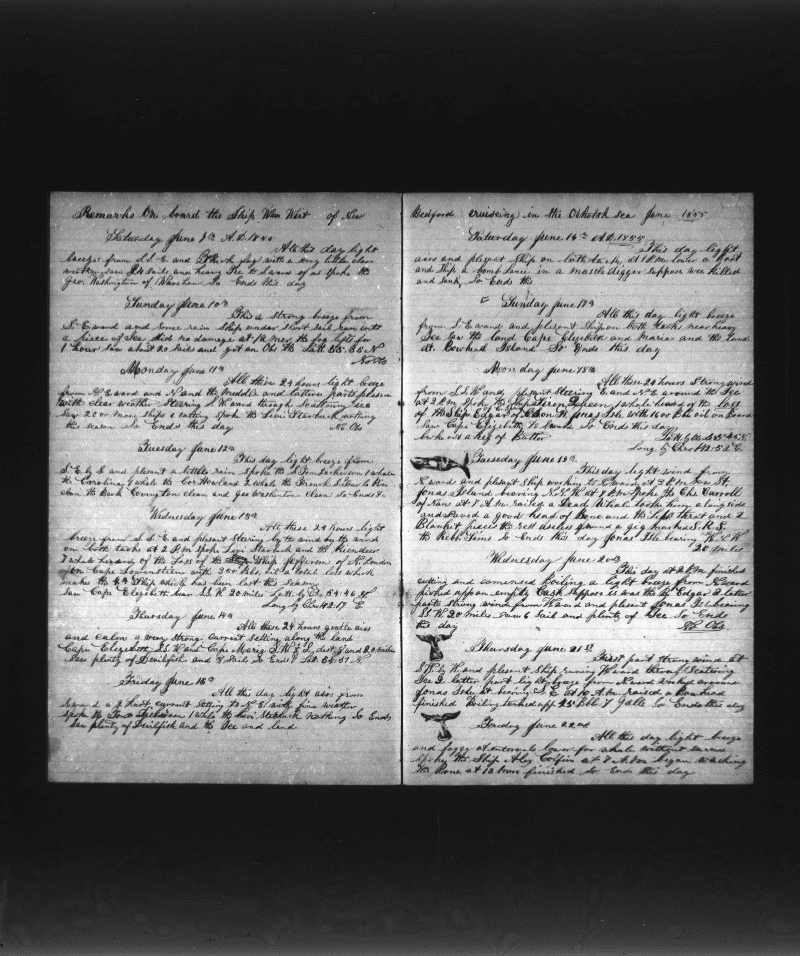 Remarks On board the Ship Wm Wirt of New
Saturday June 9th A.D. 1855
All this day light
breeze from S.S.E. and thick fog with a very little clear
weather saw 20 Sails and heavy Ice to Leward of us Spoke the
Geo. Washington of Wareham So Ends this day
Sunday June 10th
This a strong breeze from
S. Eward and some rain Ship under Short Sail ran into
a piece of Ice did no damage at 12 Mer the fog left for
1 hour Saw about 20 Sails and got an Obs the Latt 55.35 N
No Obs
Monday June 11th
All these 24 hours light breeze
from N. Eward and N and the middle and latter parts pleasant
with clear weather Steering S. Wward through Scattering Ice
Saw 20 or more ships 2 cutting Spoke the Levi Starbuck nothing
this season So Ends this day No Obs
Tuesday June 12th
This day light breeze from
S.E. by E and pleasant a little rain Spoke the S. Tom Dickerson 1 whale
the Carolina 1 whale the Cor Howland 2 whale the French S.
clean the Bark Covington clean and Geo Washington Clean So Ends &c
Wednesday June 13th
All these 24 hours light
breeze from S.S.E and pleasant Steering by the wind by the wind
on both tacks at 2 P.M. Spoke Levi Starbuck and the Reindeer
7 whale heard of the Loss of the Ship Jefferson of N. London
on Cape Lowenstern with 300 bbls oil a total loss which
makes the 4th Ship which has been lost this season
Saw Cape Elizabeth bear S.S.W 20 miles Latt. by Obs 54.46 N
Long by Chro 142.17 E
Thursday June 14th
All these 24 hours gentle airs
and calm a very strong current setting along the land
Cape Elizabeth S.S.W and Cape Maria S.W & S, dist. 8 and 20 miles
Saw plenty of Devilfish and 8 Sails So Ends Lat 54.51 N
Friday June 15th
All this day light airs from
Eward a 2 knot current setting to N.E. with fine weather
Spoke the Tom Dickerson 1 whale the Levi Starbuck nothing So Ends
Saw plenty of Devilfish and the Ice and land
Bedford cruising in the Ochotsk sea June 1855
Saturday June 16th A.D. 1855
This day light
airs and pleasant Ship on both tacks at 1 P.M. lower a boat
and Ship a bomb lance in a muscle digger suppose was killed
and sunk, So Ends the
Sunday June 17th
All this day light breeze
from S. Eward and pleasant Ship on both tacks near heavy
Ice saw the land Cape Elizabeth and Maria and the land
at Bowhead Island So Ends this day
Monday June 18th
All these 24 hours Strong wind
from S.S.W and pleasant Steering E and N.E. around the Ice
at 2 P.M. Spoke the Ship Siren Queen 1 whale heard of the Loss
of the Ship Edgar of on N. Jonas Isle with 1600 Bbls oil on Board
Saw Cape Elizabeth to So Ends this day
broke out a keg of Butter Latt by Obs 55.25 N
Long by Chro 142.52 E
Tuesday June 19th
This day light wind from
N.ward and pleasant Ship working to N.ward at 2 P.M. saw St.
Jonas Island bearing N.N.W. at 7 P.M. Spoke the Chs Carroll
of Nan. at 7 A.M. raised a Dead Whale took him along side
and Saved a good head of Bone and the Lips throat and 2
Blanket pieces the rest useless found a gig marked S.R.S.
the 12th Time So Ends this day Jonas Isle bearing W.S.W
20 miles
Wednesday June 20th
This day at 2 P.M. finished
cutting and commenced boiling a light breeze from N. Eward
picked up an empty Cask suppose is was the Edgar's latter
part strong wind from N.ward and pleasant Jonas Isl. bearing
S.W. 20 miles, saw 6 Sail and plenty of Ice So Ends
this day No Obs
Thursday June 21st
First part strong wind at
S.W. by W and pleasant Ship running N.ward through Scattering
Ice & latter part light breeze from N.ward worked around
Jonas Isle it bearing S.E. at 10 A.M. raised a Bowhead
finished Boiling turned up 45 Bbl. 7 Galls So Ends this day
Friday June 22nd
All this day light breeze
and foggy at intervals lower for whale without success
spoke the Ship Alex Coffin at 7 A.M. began washing
the Bone at 12 Mer finished So Ends this day